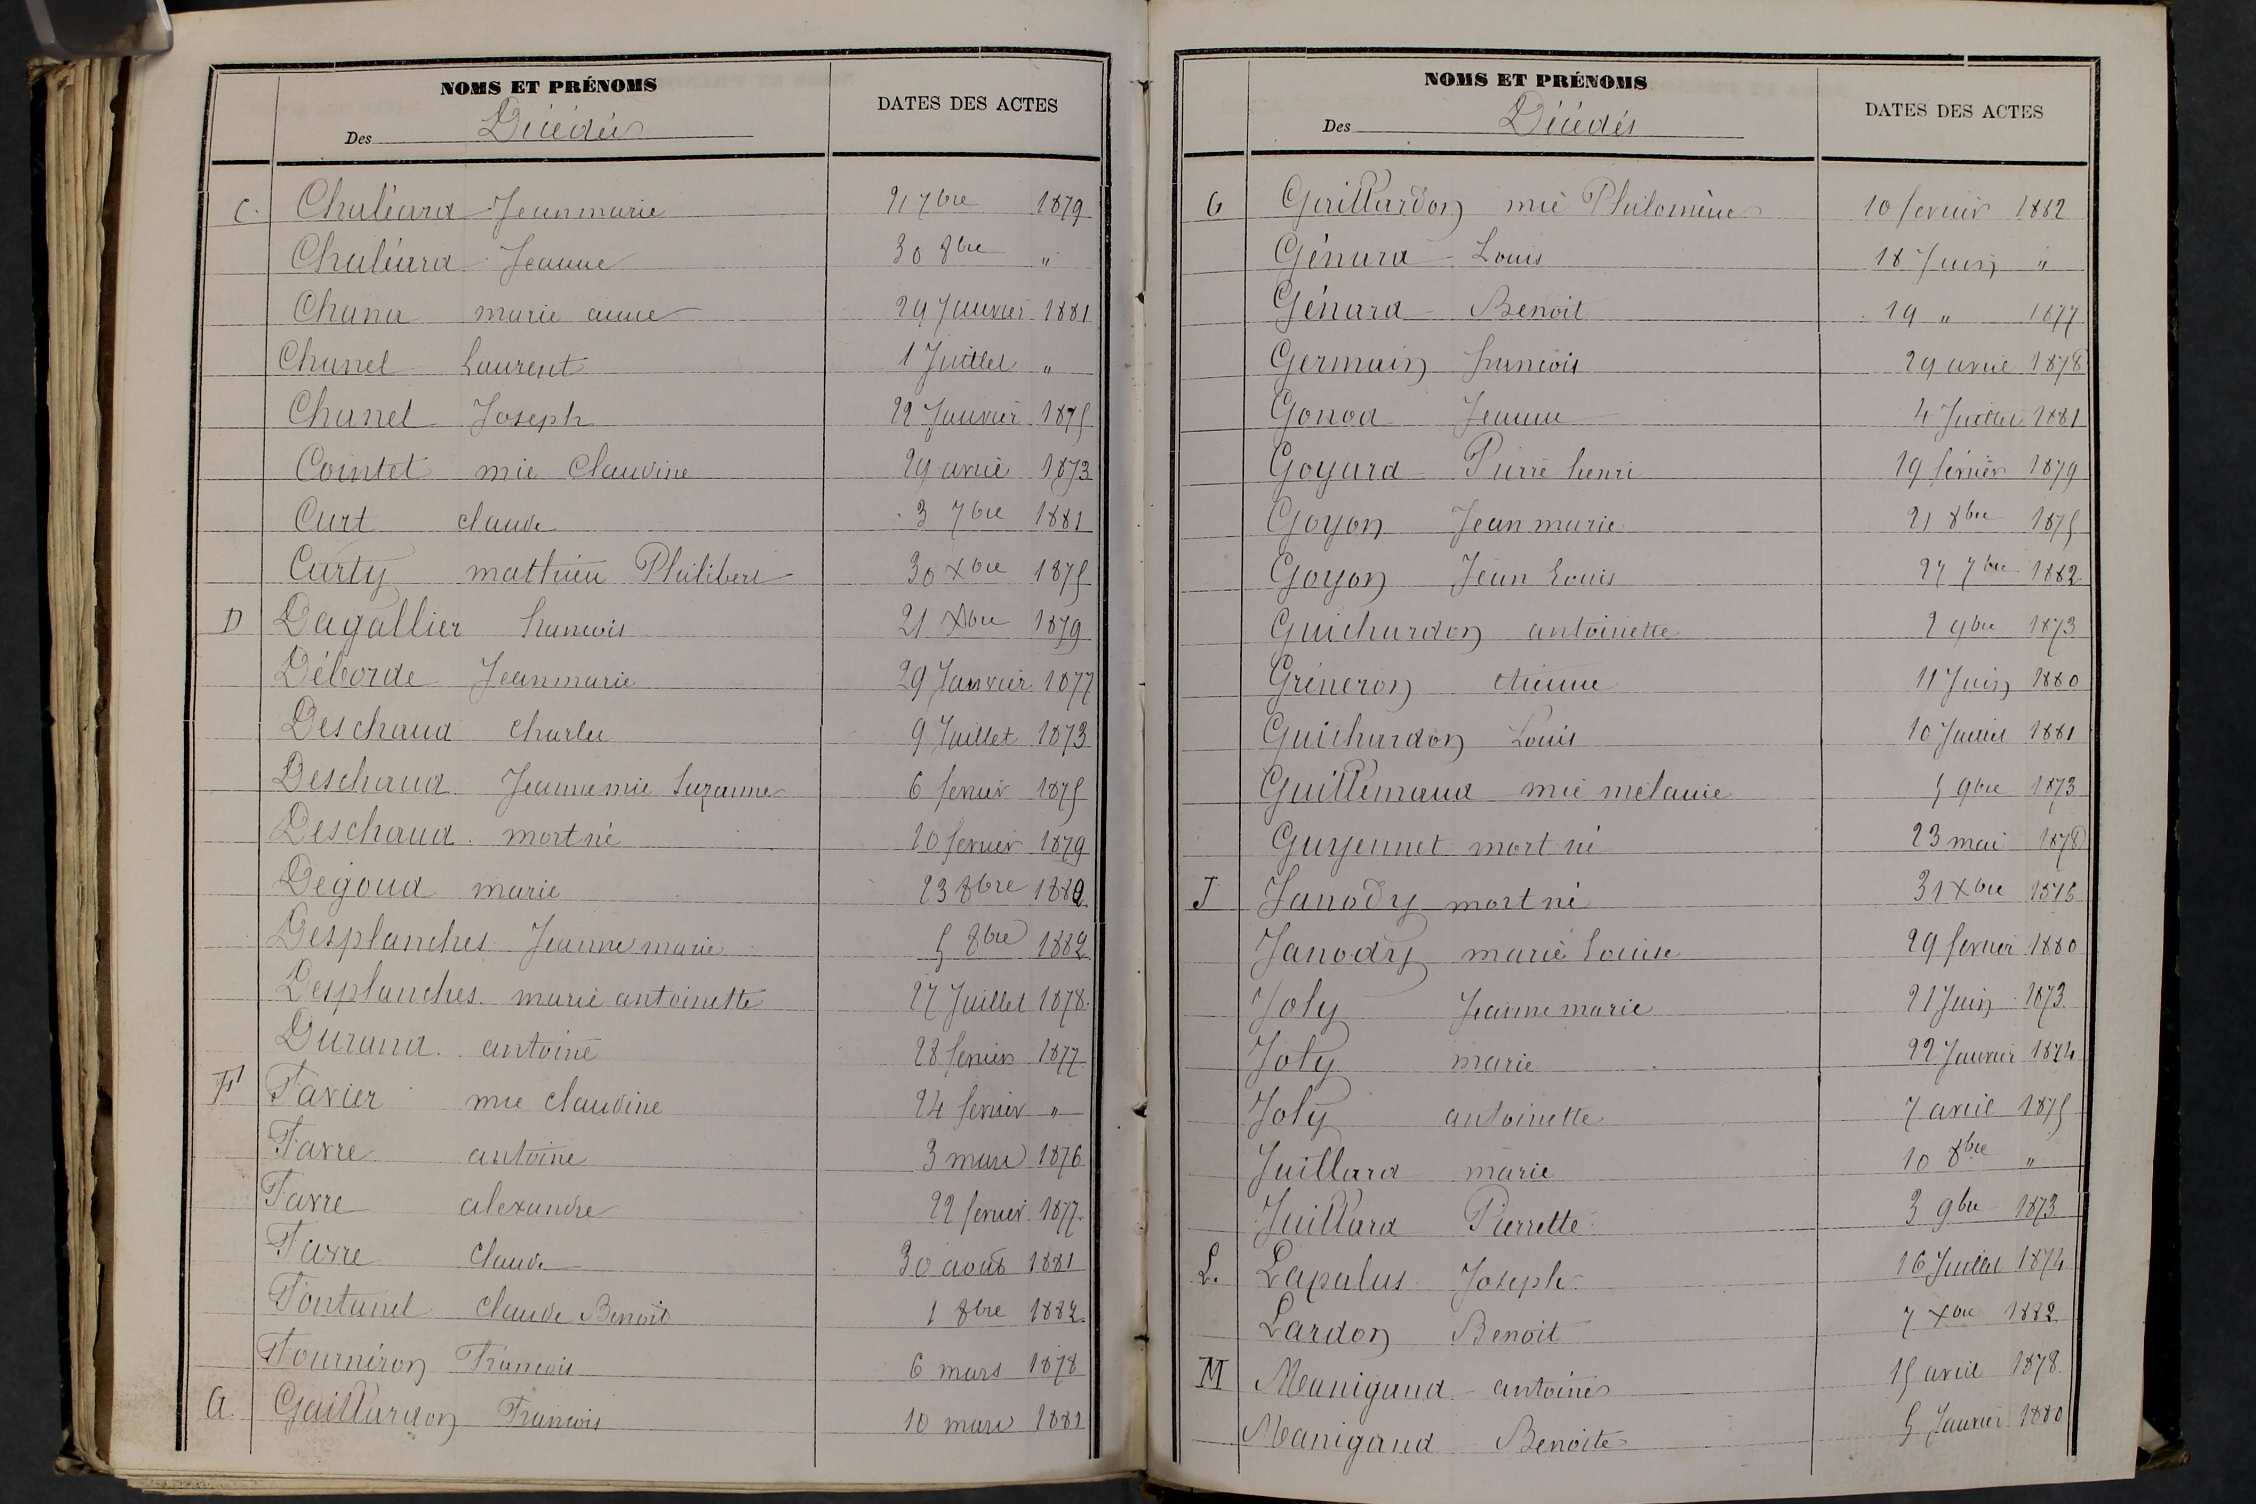 NOMS ET PRÉNOMS
Des Décédés
DATES DES ACTES
C. Chaléard Jeanmarie 21 7bre 1879
Chaléard Jeanne 30 8bre "
Chana marie anne 29 Janvier 1881
Chanel Laurent 1 Juillet "
Chanel Joseph 22 Janvier 1875
Cointet mie Claudine 29 avril 1873
Curt claude 3 7bre 1881
Curty mathieu Philibert 30 Xbre 1875
D Dagallier francois 21 Xbre 1879
Déborde Jeanmarie 29 Janvier 1877
Deschaud Charles 9 Juillet 1873
Deschaud Jeanne mie Suzanne 6 fevrier 1875
Deschaud mort né 20 fevrier 1879
Degoud marie 23 8bre 1882
Desplanches Jeanne marie 5 8bre 1882
Desplanches marie antoinette 27 Juillet 1878
Durand antoine 28 fevrier 1877
F Favier mie claudine 24 fevrier "
Favre antoine 3 mars 1876
Favre alexandre 22 fevrier 1877
Favre Claude 30 août 1881
Fontanel Claude Benoit 1 8bre 1882
Fourniron Francois 6 mars 1878
G. Gaillardon Francois 10 mars 1881
NOMS ET PRÉNOMS
Des Décédés
DATES DES ACTES
G Gaillardon mie Philomène 10 fevrier 1882
Génard Louis 18 Juin "
Génard Benoit 19 " 1877
Germain francois 29 avril 1878
Gonod Jeanne 4 Juillet 1881
Goyard Pierre henri 19 février 1879
Goyon Jean marie 21 8bre 1875
Goyon Jean Louis 27 7bre 1882
Guichardon antoinette 2 9bre 1873
Gréneron etienne 11 Juin 1880
Guichardon Louis 10 Juillet 1881
Guillemaud mie mélanie 5 9bre 1873
Guyennet mort né 23 mai 1878
J Janody mort né 31 Xbre 1876
Janody marie Louise 29 fevrier 1880
Joly Jeanne marie 21 Juin 1873
Joly marie 22 Janvier 1874
Joly antoinette 7 avril 1875
Juillard marie 10 8bre "
Juillard Pierrette 3 9bre 1873
L. Lapalus Joseph 16 Juillet 1874
Lardon Benoit 7 Xbre 1882
M Manigand antoine 15 avril 1878
Manigand Benoite 5 Janvier 1880